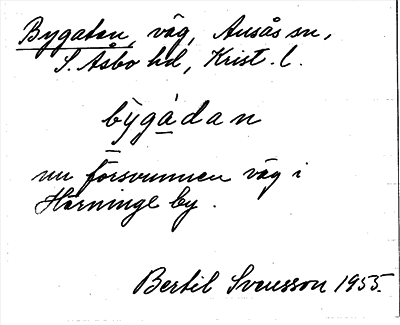 Bygatan, väg, Ausås sn,
S. Åsbo hd, Krist. l.
by̆gá̱dan
nu försvunnen väg i
Härninge by.
Bertil Svensson 1955.